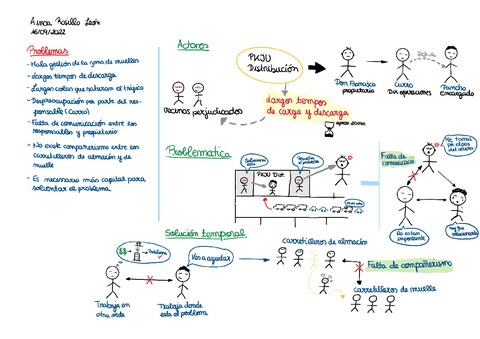 Ainoa Rosillo León
16/09/2022
Problemas
- Mala gestión de la zona de muelles
- Largos tiempos de descarga
- Largas colas que saturan el tráfico
- Despreocupación por parte del res-
ponsable (Curro)
- Falta de comunicación entre los
responsables y propietario
- No existe compañerismo entre los
carretilleros de almacén y de
muelle
- Es necesario más capital para
solventar el problema
Actores
PKJU
Distribución
Don Francisco
propietario
Curro
Dir. operaciones
Jefe de
Pancho
Encargado
Vecinos perjudicados
Largos tiempos
de carga y descarga
Problemática
PKJU Dist.
Falta de
comunicación
No es tan
importante
Solución temporal
$$
Problema
Ves a ayudar
Trabaja en
otra sede
Trabaja donde
está el problema
Carretilleros de almacén
Falta de compañerismo
Carretilleros de muelle